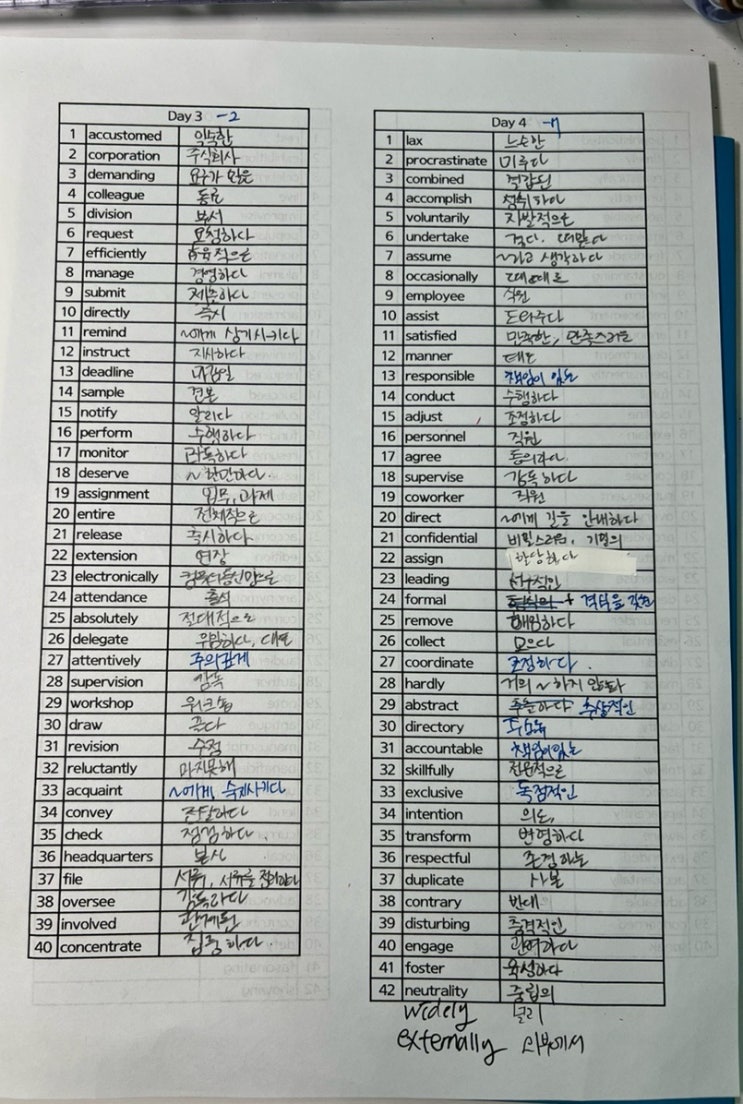 Day 3 -2
1 accustomed 익숙한
2 corporation 주식회사
3 demanding 요구가 많은
4 colleague 동료
5 division 부서
6 request 요청하다
7 efficiently 효율적으로
8 manage 경영하다
9 submit 제출하다
10 directly 즉시
11 remind ~에게 상기시키다
12 instruct 지시하다
13 deadline 마감일
14 sample 견본
15 notify 알리다
16 perform 수행하다
17 monitor 감독하다
18 deserve ~할만하다.
19 assignment 임무, 과제
20 entire 전체적으로
21 release 출시하다
22 extension 연장
23 electronically 컴퓨터통신망으로
24 attendance 출석
25 absolutely 절대적으로
26 delegate 위임하다, 대표
27 attentively 주의깊게
28 supervision 감독
29 workshop 워크숍
30 draw 끌다
31 revision 수정
32 reluctantly 마지못해
33 acquaint ~에게 숙지시키다
34 convey 전달하다
35 check 점검하다.
36 headquarters 본사
37 file 서류, 서류를 정리하다
38 oversee 감독하다
39 involved 관계된
40 concentrate 집중하다
Day 4 -7
1 lax 느슨한
2 procrastinate 미루다
3 combined 결합된
4 accomplish 성취하다
5 voluntarily 자발적으로
6 undertake 떠맡다
7 assume ~라고 생각하다
8 occasionally 때때로
9 employee 직원
10 assist 도와주다
11 satisfied 만족한, 만족스러운
12 manner 태도
13 responsible 책임이 있는
14 conduct 수행하다
15 adjust 조정하다
16 personnel 직원
17 agree 동의하다.
18 supervise 감독하다
19 coworker 직원
20 direct ~에게 길을 안내하다
21 confidential 비밀스러운, 기밀의
22 assign 할당하다
23 leading 선두적인
24 formal 형식의 + 격식을 갖춘
25 remove 해임하다
26 collect 모으다
27 coordinate 조정하다.
28 hardly 거의 ~하지 않는다
29 abstract 추출하다 추상적인
30 directory 주소록
31 accountable 책임이있는
32 skillfully 전문적으로
33 exclusive 독점적인
34 intention 의도,
35 transform 변형하다
36 respectful 존경하는
37 duplicate 사본
38 contrary 반대
39 disturbing 충격적인
40 engage 관여하다
41 foster 육성하다
42 neutrality 중립의
widely 널리
externally 외부에서